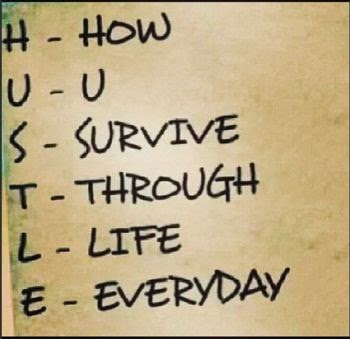 H - HOW
U - U
S - SURVIVE
T - THROUGH
L - LIFE
E - EVERYDAY